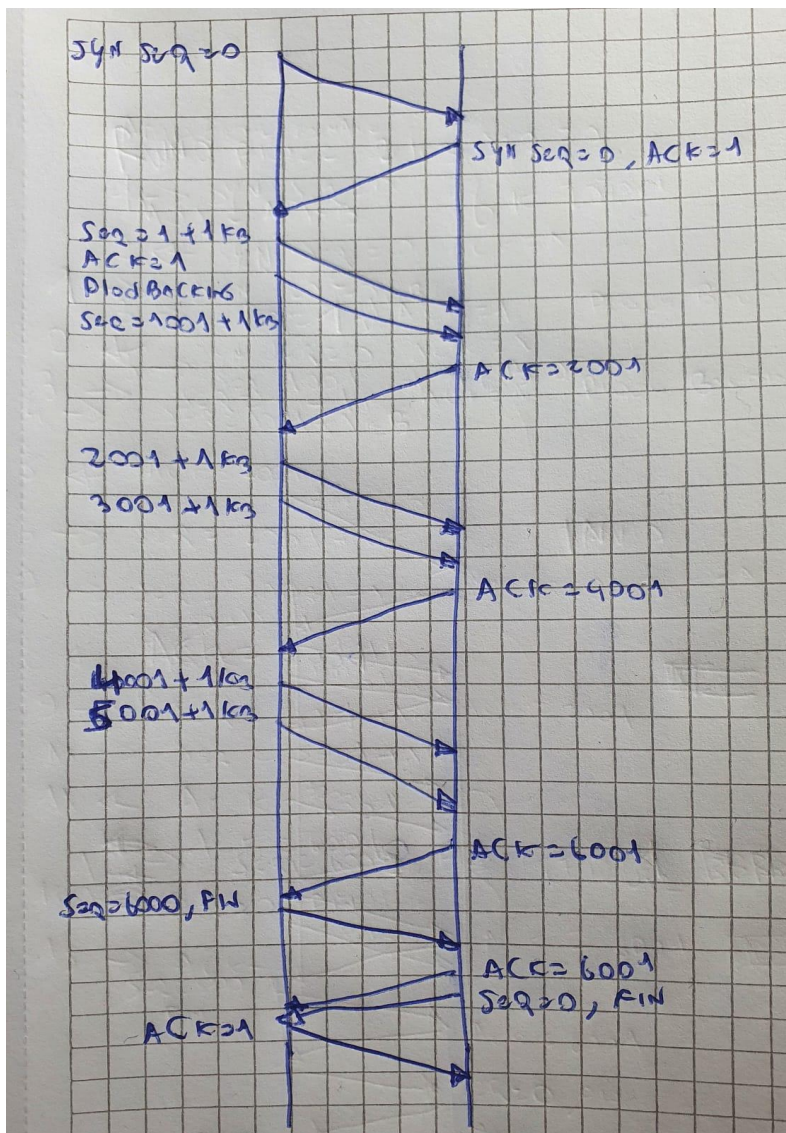 SYN SEQ=0
SYN SEQ=0, ACK=1
SEQ=1+1KB
ACK=1
SEQ=1001+1KB
ACK=2001
2001+1KB
3001+1KB
ACK=4001
4001+1KB
5001+1KB
ACK=6001
SEQ=6000, FIN
ACK=6001
SEQ=0, FIN
ACK=1